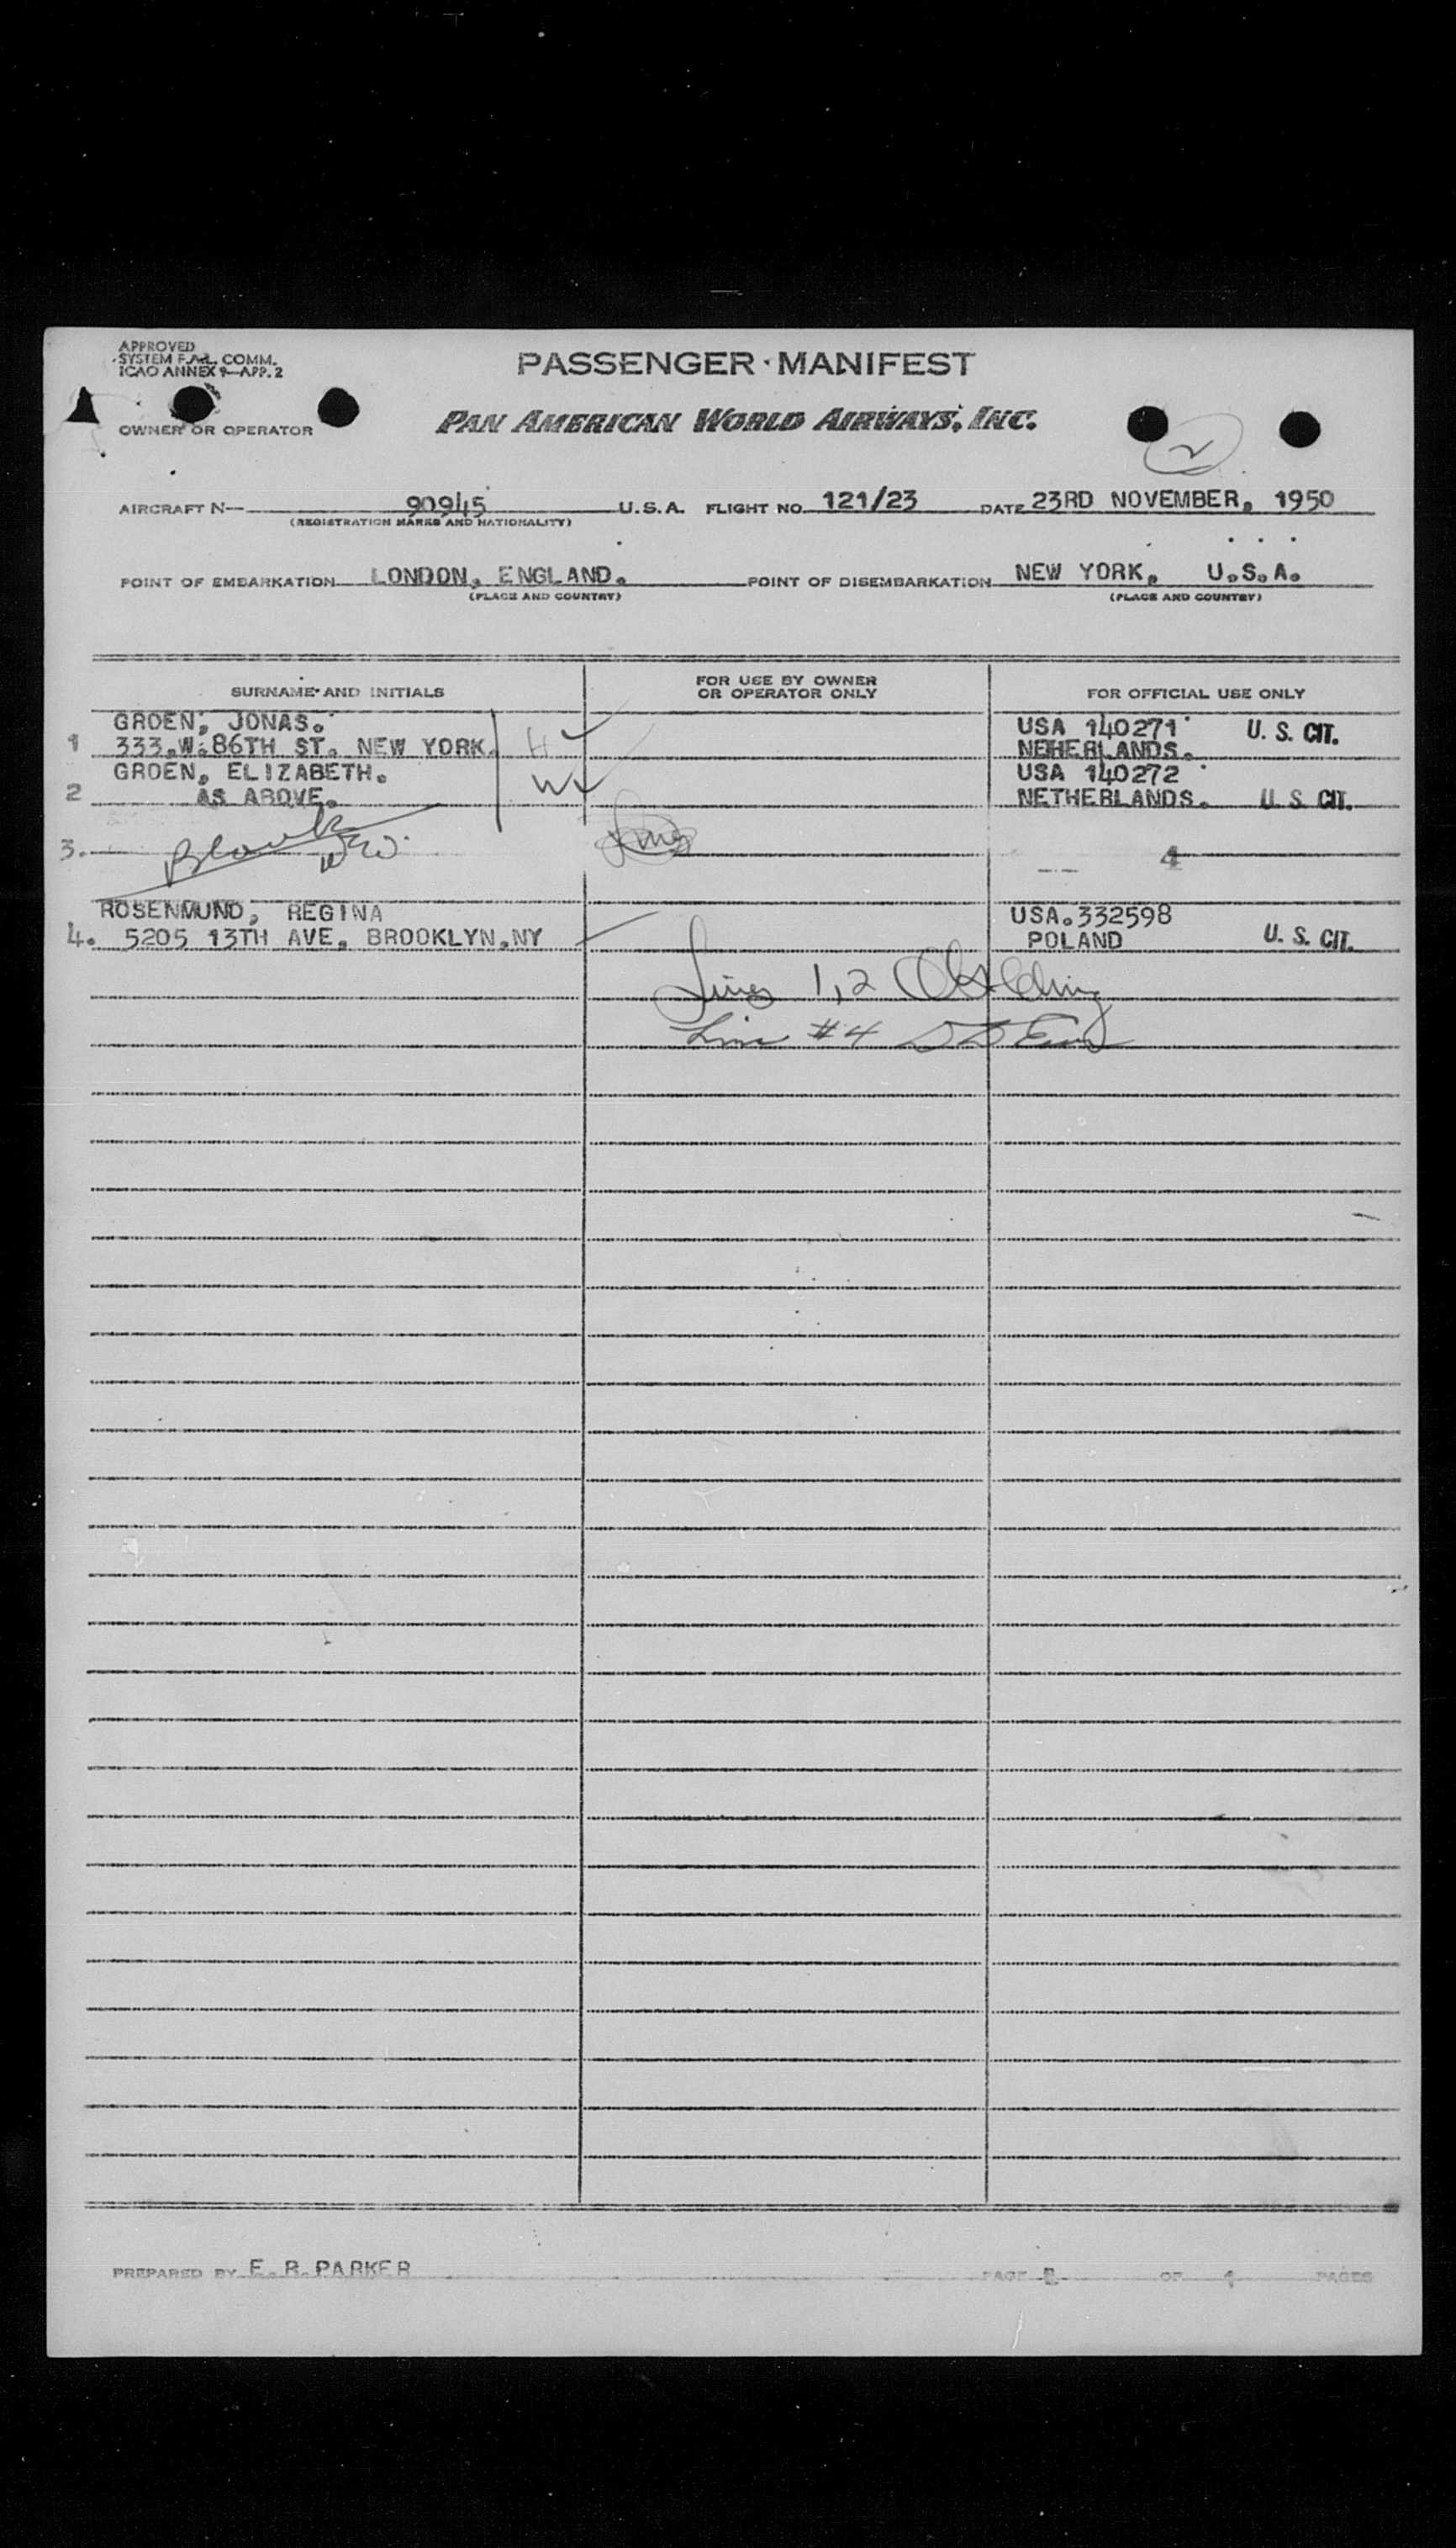 APPROVED
SYSTEM F.A.L. COMM.
ICAO ANNEX 9—APP. 2
PASSENGER MANIFEST
OWNER OR OPERATOR
PAN AMERICAN WORLD AIRWAYS, INC.
2
AIRCRAFT N— 90945 U.S.A. FLIGHT NO. 121/23 DATE 23RD NOVEMBER, 1950
(REGISTRATION MARKS AND NATIONALITY)
POINT OF EMBARKATION LONDON, ENGLAND. POINT OF DISEMBARKATION NEW YORK, U.S.A.
(PLACE AND COUNTRY) (PLACE AND COUNTRY)
SURNAME AND INITIALS FOR USE BY OWNER OR OPERATOR ONLY FOR OFFICIAL USE ONLY
GROEN, JONAS. USA 140271 U. S. CIT.
1 333.W.86TH ST. NEW YORK. H NEHERLANDS.
GROEN, ELIZABETH. W USA 140272
2 AS ABOVE. NETHERLANDS. U. S. CIT.
3. Blank 4
ROSENMUND, REGINA USA.332598
4. 5205 13TH AVE. BROOKLYN.NY POLAND U. S. CIT.
Lines 1,2
Line #4
PREPARED BY E. R. PARKER PAGE 2 OF 1 PAGES